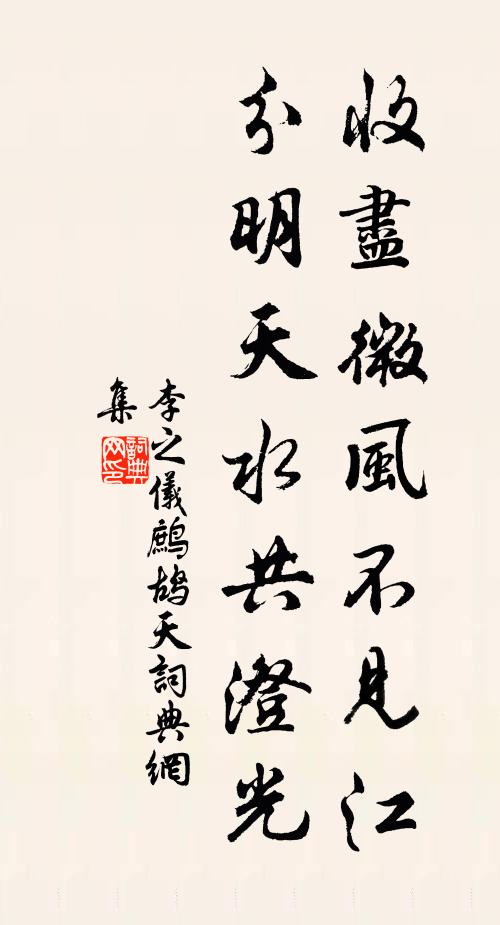 收盡微風不見江
分明天水共澄光
李之儀鷓鴣天詞典網
集
詞典网印